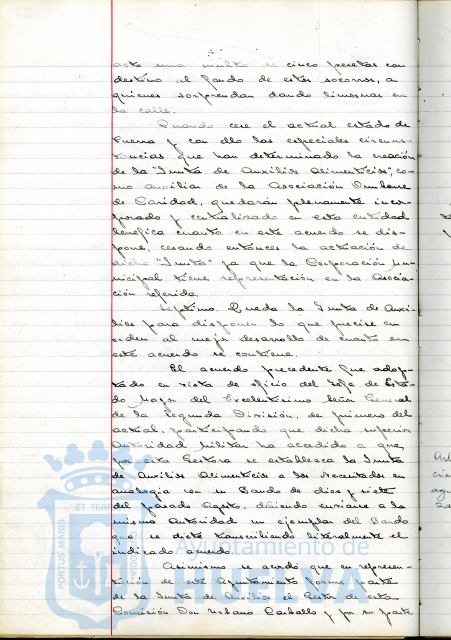 acto una multa de cinco pesetas con
destino al fondo de estos socorros, a
quienes sorprendan dando limosnas en
la calle.
Cuando cese el actual estado de
Guerra y con ello las especiales circuns-
tancias que han determinado la creación
de la "Junta de Auxilios Alimenticios", co-
mo auxiliar de la Asociación Onubense
de Caridad, quedarán plenamente incor-
porado y centralizado en esta entidad
benéfica cuanto en este acuerdo se dis-
pone, cesando entonces la actuación de
dicha "Junta" ya que la Corporación Mu-
nicipal tiene representación en la Asocia-
ción referida.
Séptimo. Queda la Junta de Auxi-
lios para disponer lo que precise en
orden al mejor desarrollo de cuanto en
este acuerdo se contiene.
El acuerdo precedente fue adop-
tado en vista de oficio del Jefe de Esta-
do Mayor del Excelentísimo Señor General
de la Segunda División, de primero del
actual, participando que dicha superior
Autoridad Militar ha accedido a que
por esta Gestora se establezca la Junta
de Auxilios Alimenticios a los Necesitados en
analogía con su Bando de diez y siete
del pasado Agosto, debiendo enviarse a la
misma Autoridad un ejemplar del Bando
que se dicte transcribiendo literalmente el
indicado acuerdo.
Asimismo se acordó que en represen-
tación de este Ayuntamiento forme parte
de la Junta de Auxilios el Gestor de esta
Comisión Don Urbano Carballo y por su parte
Ayuntamiento de
HUELVA
PORTUS MARIS
ET TERRAE
CUSTODIA